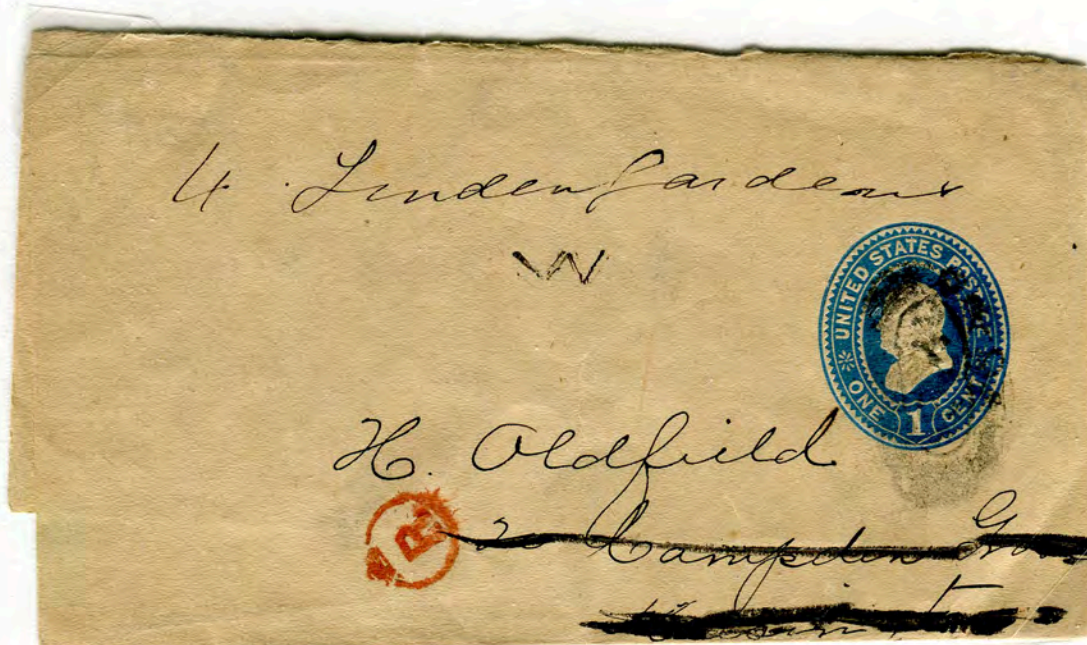 4 Linden Gardens
W
UNITED STATES POSTAGE
ONE 1 CENT
H. Oldfield
R
2 Campden